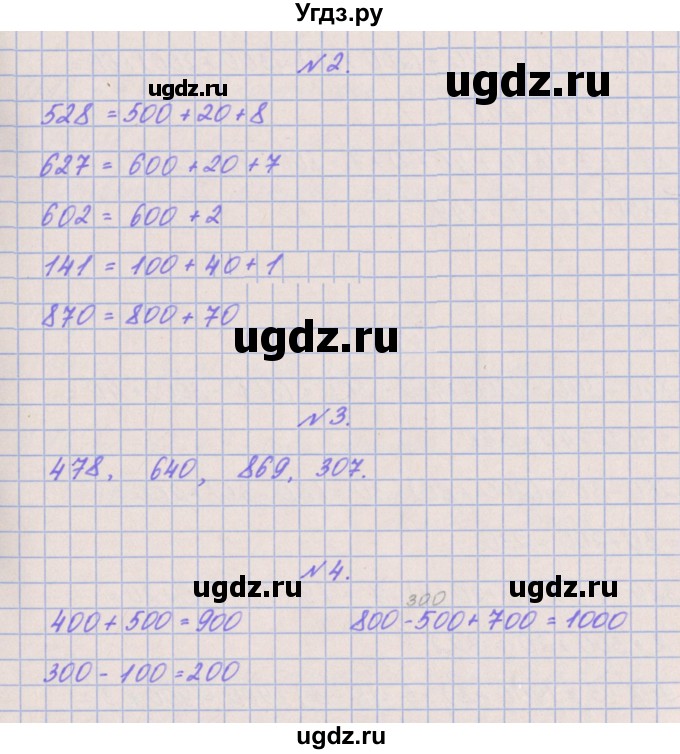 Угдз.ру
№2.
ugdz.ru
ugdz.ru
528 = 500 + 20 + 8
627 = 600 + 20 + 7
602 = 600 + 2
141 = 100 + 40 + 1
870 = 800 + 70
ugdz.ru
№3.
478, 640, 869, 307.
№4.
ugdz.ru
ugdz.ru
300
400 + 500 = 900 800 - 500 + 700 = 1000
300 - 100 = 200
ugdz.ru